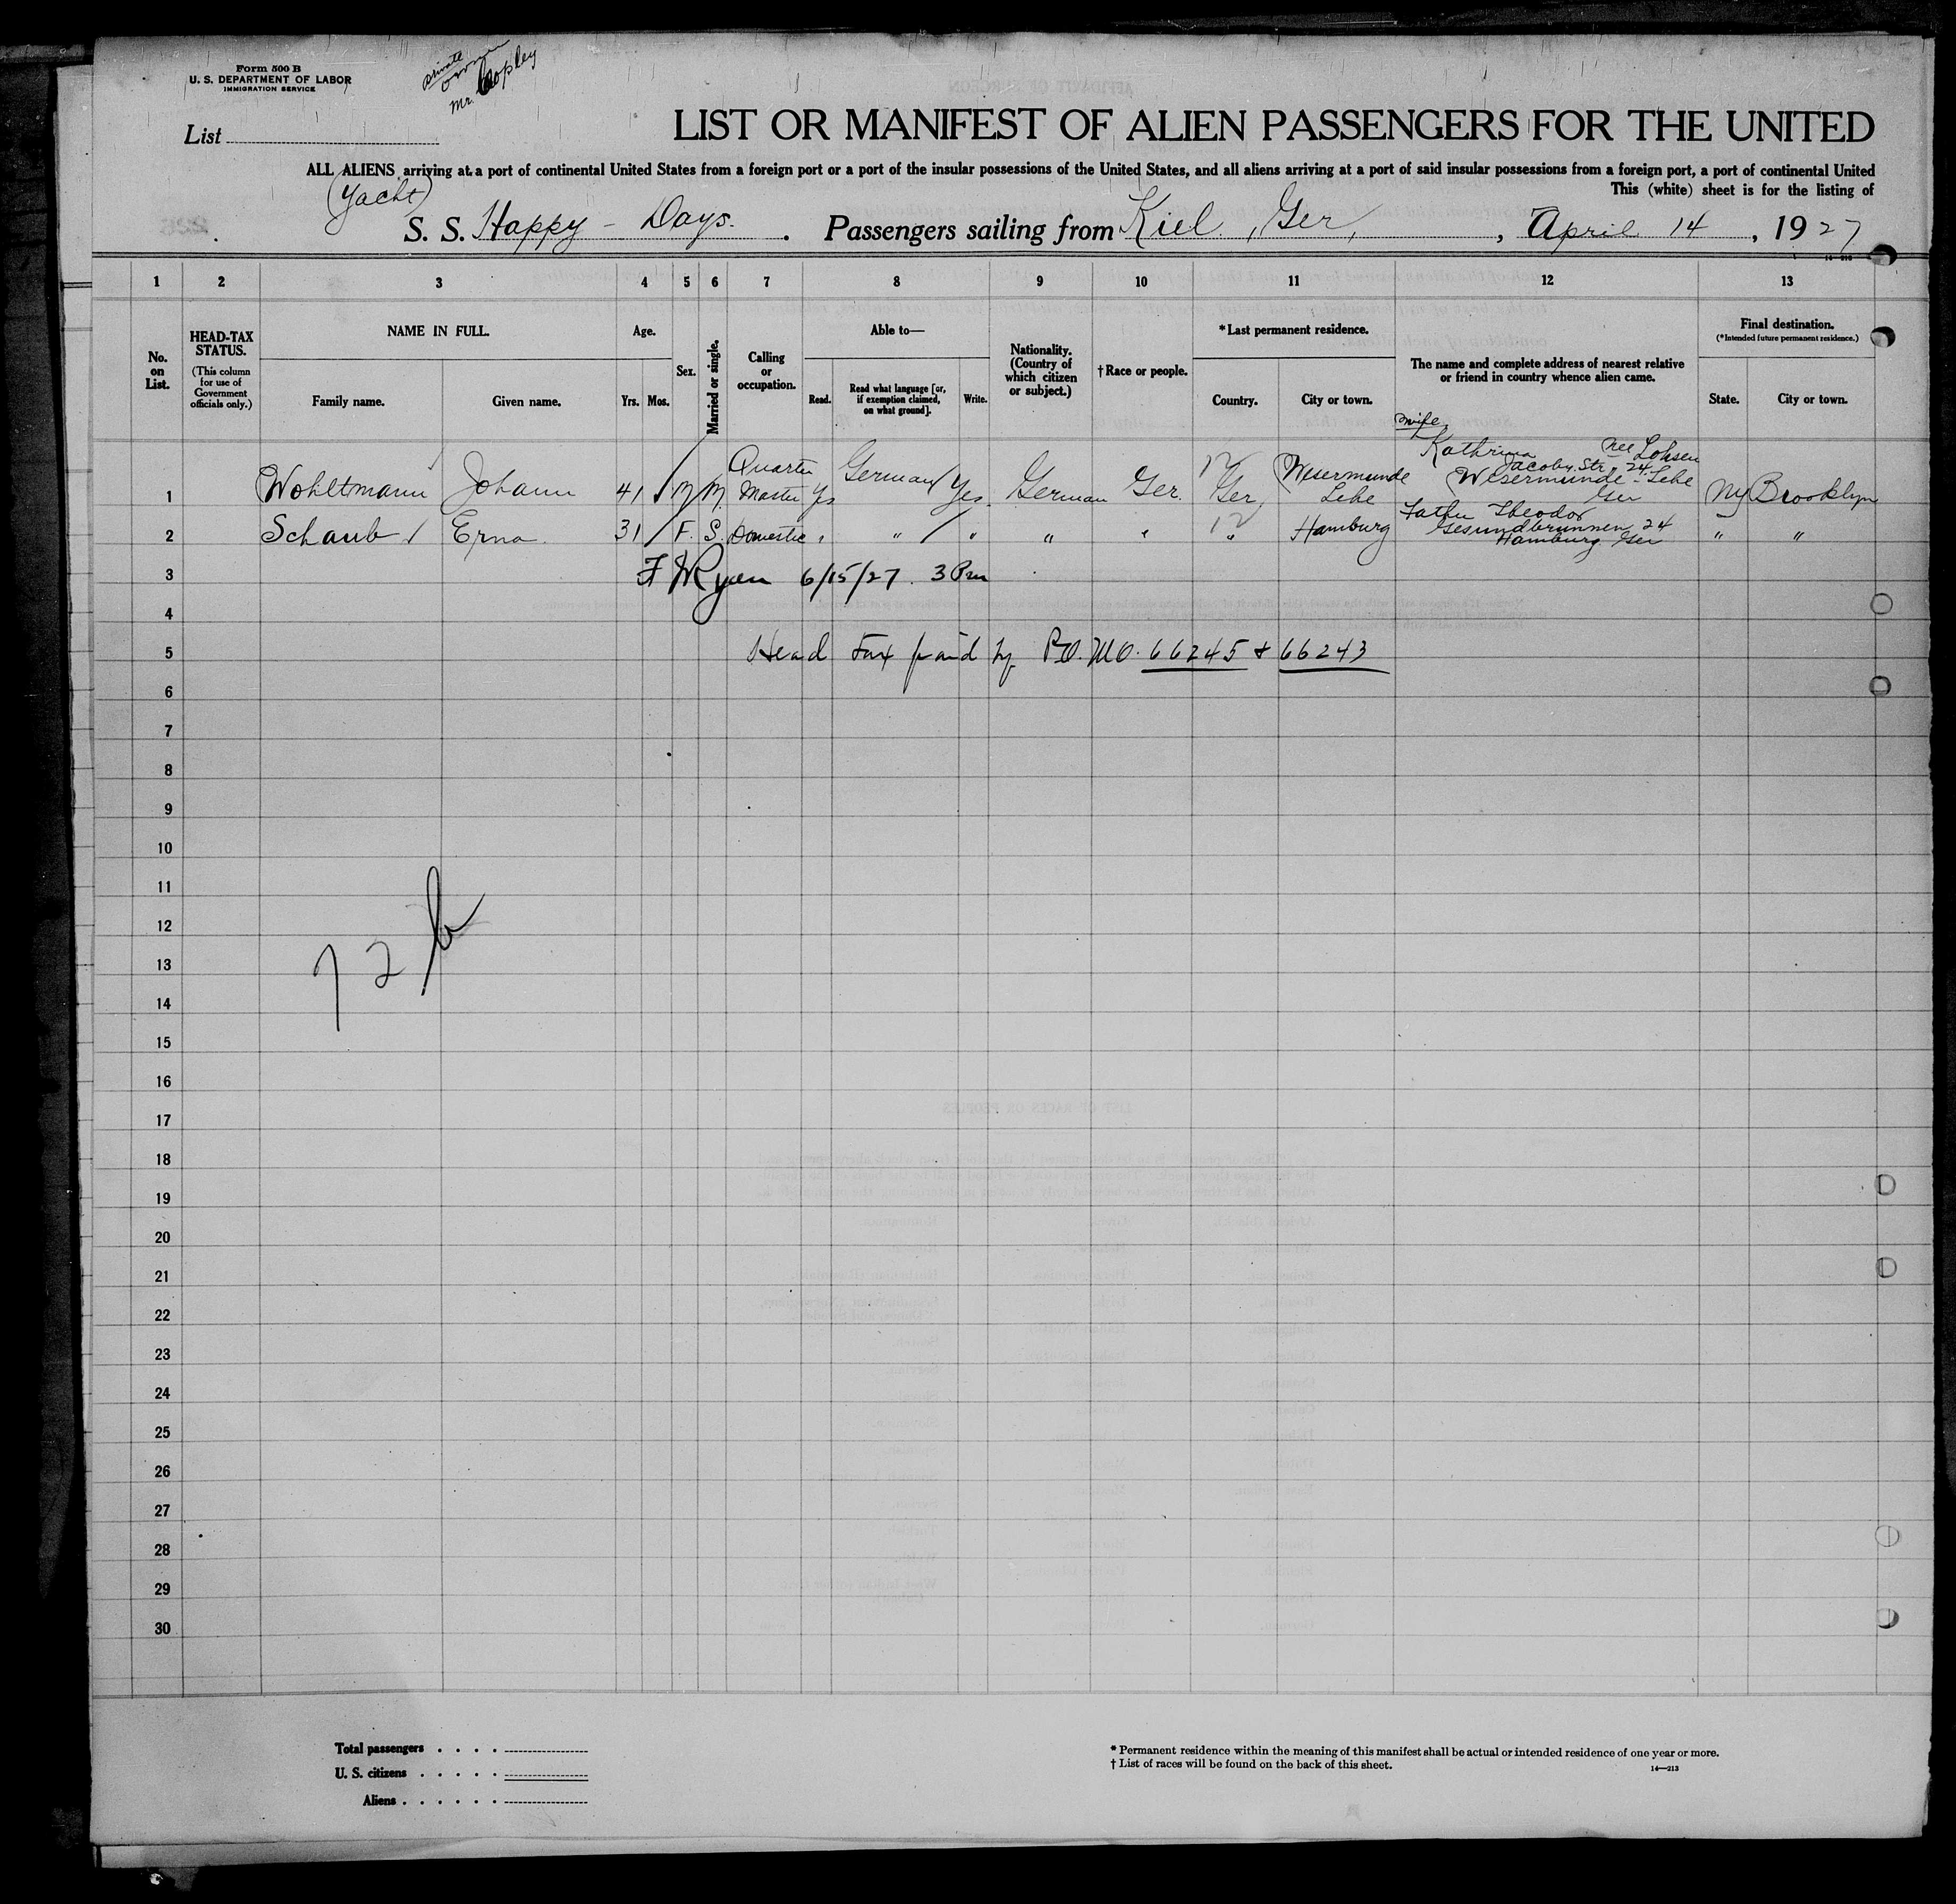 Form 500 B
U. S. DEPARTMENT OF LABOR
IMMIGRATION SERVICE
private
owner
Mr. Copley
List
LIST OR MANIFEST OF ALIEN PASSENGERS FOR THE UNITED
ALL ALIENS arriving at a port of continental United States from a foreign port or a port of the insular possessions of the United States, and all aliens arriving at a port of said insular possessions from a foreign port, a port of continental United
This (white) sheet is for the listing of
(Yacht)
S. S. Happy - Days. Passengers sailing from Kiel, Ger, , April 14, 1927
1 2 3 4 5 6 7 8 9 10 11 12 13
No. on List.
HEAD-TAX STATUS.
(This column for use of Government officials only.)
NAME IN FULL.
Family name. Given name.
Age.
Yrs. Mos.
Sex.
Married or single.
Calling or occupation.
Able to—
Read. Read what language [or, if exemption claimed, on what ground]. Write.
Nationality. (Country of which citizen or subject.)
† Race or people.
* Last permanent residence.
Country. City or town.
The name and complete address of nearest relative or friend in country whence alien came.
Final destination.
(* Intended future permanent residence.)
State. City or town.
1 Wohltmann Johann 41 M M. Quarter Master Yes German Yes. German Ger. Ger, Wesermunde Lehe wife, Kathrina nee Lohsen Jacobi Str, 24. Wesermunde - Lehe Ger NY Brooklyn
2 Schaub Erna. 31 F. S. Domestic " " " " " " Hamburg Father Theodor Gesundbrunnen 24 Hamburg Ger " "
3 F W Ryan 6/15/27. 3 Pm
4
5 Head tax paid by P.O. M.O. 66245 + 66243
6
7
8
9
10
11
12
13
14
15
16
17
18
19
20
21
22
23
24
25
26
27
28
29
30
Total passengers
U. S. citizens
Aliens
* Permanent residence within the meaning of this manifest shall be actual or intended residence of one year or more.
† List of races will be found on the back of this sheet.
14—213